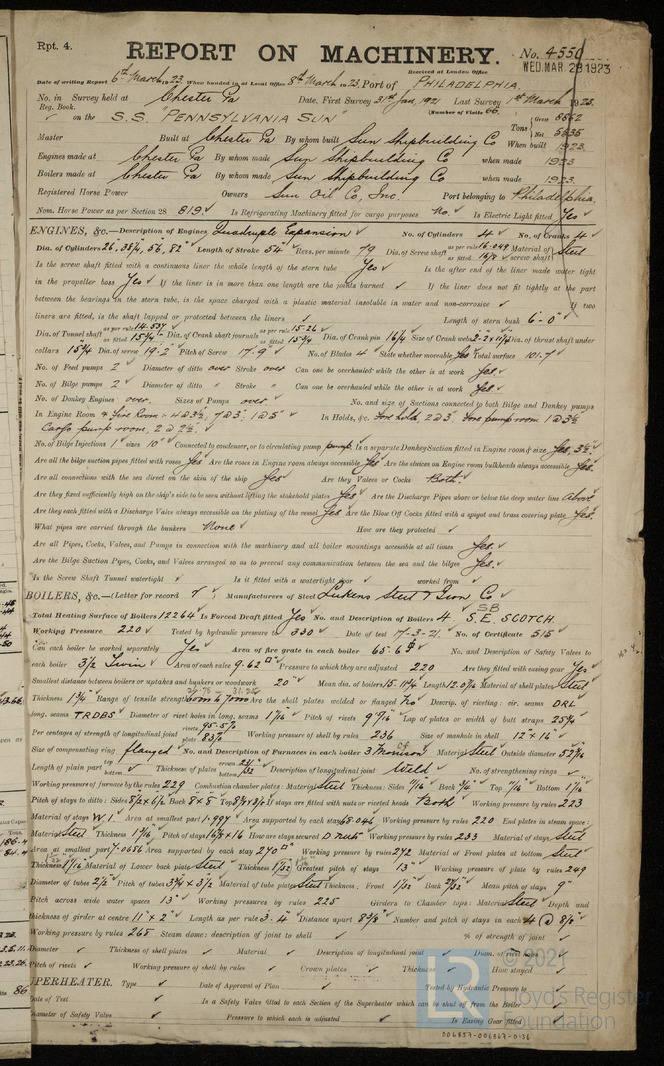 Rpt. 4.
REPORT ON MACHINERY.
No. 4550
WED. MAR 28 1923
Received at London Office
Date of writing Report 6th March 1923. When handed in at Local Office 8th March 1923. Port of PHILADELPHIA.
No. in Survey held at Chester Pa Date, First Survey 31st Jan, 1921 Last Survey 1st March 1923.
Reg. Book. (Number of Visits 66.
on the S.S. "PENNSYLVANIA SUN" Tons Gross 8862 Net 5535
Master Built at Chester Pa By whom built Sun Shipbuilding Co When built 1923.
Engines made at Chester Pa By whom made Sun Shipbuilding Co when made 1923
Boilers made at Chester Pa By whom made Sun Shipbuilding Co when made 1923.
Registered Horse Power Owners Sun Oil Co, Inc. Port belonging to Philadelphia.
Nom. Horse Power as per Section 28 819 Is Refrigerating Machinery fitted for cargo purposes No. Is Electric Light fitted Yes
ENGINES, &c.—Description of Engines Quadruple Expansion No. of Cylinders 4 No. of Cranks 4
Dia. of Cylinders 26, 38¼, 56, 82" Length of Stroke 54" Revs. per minute 79 Dia. of Screw shaft as per rule 16.049 as fitted 16⅛ Material of screw shaft Steel
Is the screw shaft fitted with a continuous liner the whole length of the stern tube Yes Is the after end of the liner made water tight
in the propeller boss Yes If the liner is in more than one length are the joints burned If the liner does not fit tightly at the part
between the bearings in the stern tube, is the space charged with a plastic material insoluble in water and non-corrosive If two
liners are fitted, is the shaft lapped or protected between the liners Length of stern bush 6'-0"
Dia. of Tunnel shaft as per rule 14.537 as fitted 15¾" Dia. of Crank shaft journals as per rule 15.26 as fitted 15¾ Dia. of Crank pin 16¼ Size of Crank webs Dia. of thrust shaft under
collars 15¾ Dia. of screw 19-2" Pitch of Screw 17-9" No. of Blades 4 State whether moveable Yes Total surface 101.7
No. of Feed pumps 2 Diameter of ditto over Stroke over Can one be overhauled while the other is at work Yes
No. of Bilge pumps 2 Diameter of ditto " Stroke " Can one be overhauled while the other is at work Yes
No. of Donkey Engines over. Sizes of Pumps over No. and size of Suctions connected to both Bilge and Donkey pumps
In Engine Room & Fire Room :- 4 @ 3½, 7 @ 3", 1 @ 5" In Holds, &c. Fore hold 2 @ 3" Fore pump room 1 @ 3½
Cargo pump room, 2 @ 2½.
No. of Bilge Injections 1 sizes 10" Connected to condenser, or to circulating pump pump. Is a separate Donkey Suction fitted in Engine room & size Yes, 3½
Are all the bilge suction pipes fitted with roses Yes Are the roses in Engine room always accessible Yes Are the sluices on Engine room bulkheads always accessible Yes.
Are all connections with the sea direct on the skin of the ship Yes Are they Valves or Cocks Both.
Are they fixed sufficiently high on the ship's side to be seen without lifting the stokehold plates Yes Are the Discharge Pipes above or below the deep water line above
Are they each fitted with a Discharge Valve always accessible on the plating of the vessel Yes Are the Blow Off Cocks fitted with a spigot and brass covering plate Yes.
What pipes are carried through the bunkers None How are they protected
Are all Pipes, Cocks, Valves, and Pumps in connection with the machinery and all boiler mountings accessible at all times Yes.
Are the Bilge Suction Pipes, Cocks, and Valves arranged so as to prevent any communication between the sea and the bilges Yes.
Is the Screw Shaft Tunnel watertight Is it fitted with a watertight door worked from
BOILERS, &c.—(Letter for record T) Manufacturers of Steel Lukens Steel & Iron Co
Total Heating Surface of Boilers 12264 Is Forced Draft fitted Yes No. and Description of Boilers 4 S.B S.E. SCOTCH.
Working Pressure 220 Tested by hydraulic pressure to 330 Date of test 17-3-21. No. of Certificate 515
Can each boiler be worked separately Yes Area of fire grate in each boiler 65.6 No. and Description of Safety Valves to
each boiler 3½ Twin Area of each valve 9.62 Pressure to which they are adjusted 220 Are they fitted with easing gear Yes
Smallest distance between boilers or uptakes and bunkers or woodwork 20" Mean dia. of boilers 15-11¼ Length 12.0⁹⁄₁₆ Material of shell plates Steel
Thickness 1¾" Range of tensile strength Are the shell plates welded or flanged No Descrip. of riveting: cir. seams DRL
long. seams TRDBS Diameter of rivet holes in long. seams 1⁹⁄₁₆ Pitch of rivets 9⁹⁄₁₆ Lap of plates or width of butt straps 25¾
Per centages of strength of longitudinal joint rivets 95.5% plate 83½ Working pressure of shell by rules 236 Size of manhole in shell 12" x 16"
Size of compensating ring flanged No. and Description of Furnaces in each boiler 3 Morison Material Steel Outside diameter
Length of plain part top bottom Thickness of plates crown bottom Description of longitudinal joint Weld No. of strengthening rings
Working pressure of furnace by the rules 229 Combustion chamber plates: Material Steel Thickness: Sides ¹¹⁄₁₆ Back Top ¹¹⁄₁₆ Bottom
Pitch of stays to ditto: Sides Back 8 x 8 Top If stays are fitted with nuts or riveted heads Both Working pressure by rules 223
Material of stays W.I. Area at smallest part 1.997 Area supported by each stay 68.046 Working pressure by rules 220 End plates in steam space:
Material Steel Thickness 1⁹⁄₁₆ Pitch of stays How are stays secured D Nuts Working pressure by rules 233 Material of stays Steel
Area at smallest part 7.0686 Area supported by each stay 270 Working pressure by rules 272 Material of Front plates at bottom Steel
Thickness Material of Lower back plate Steel Thickness Greatest pitch of stays 13" Working pressure of plate by rules 249
Diameter of tubes 2½" Pitch of tubes 3¾ x 3½ Material of tube plates Steel Thickness: Front Back Mean pitch of stays 9"
Pitch across wide water spaces 13" Working pressures by rules 225 Girders to Chamber tops: Material Steel Depth and
thickness of girder at centre 11" x 2" Length as per rule 3.4 Distance apart 8⅜ Number and pitch of stays in each 4 @ 8½
Working pressure by rules 265 Steam dome: description of joint to shell % of strength of joint
Diameter Thickness of shell plates Material Description of longitudinal joint Diam. of rivet holes
Pitch of rivets Working pressure of shell by rules Crown plates Thickness How stayed
UPERHEATER. Type Date of Approval of Plan Tested by Hydraulic Pressure to
Date of Test Is a Safety Valve fitted to each Section of the Superheater which can be shut off from the Boiler
Diameter of Safety Valve Pressure to which each is adjusted Is Easing Gear fitted
© 2021
LR Lloyd's Register
Foundation
006857-006867-0136